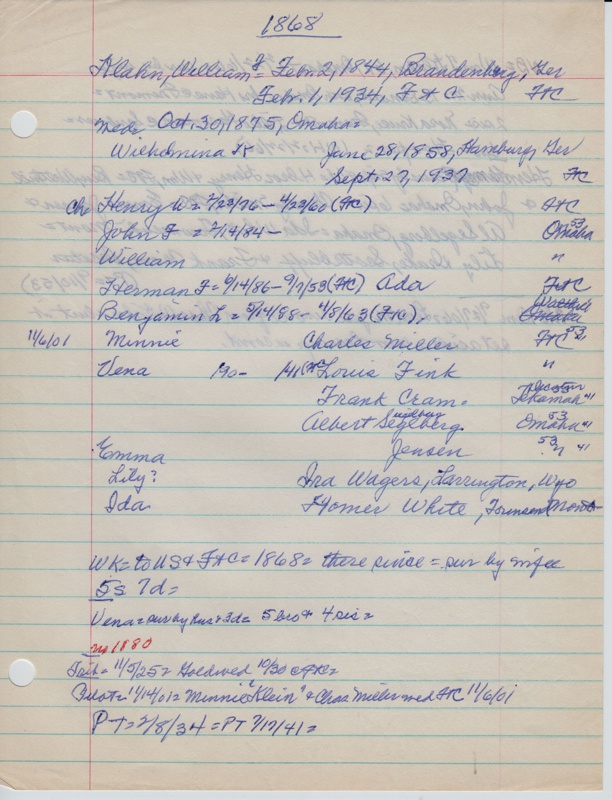 1868
Klahn, William F = Febr. 2, 1844, Brandenberg, Ger
Febr. 1, 1934, F+C F+C
Med. Oct. 30, 1875, Omaha =
Wilhelmina K June 28, 1858, Hamburg, Ger
Sept. 27, 1937 FC
Ch Henry W = 2/23/76 - 4/23/60 (FC) F+C
John F = 2/14/84 - Omaha 53
William "
Herman F = 6/14/86 - 9/7/53 (FC) Ada F+C
Benjamin L = 5/14/88 - 4/5/63 (FC). Omaha
11/6/01 Minnie Charles Miller F+C 53
Vena 190- 141 Louis Fink "
Frank Cram = Tekamah 41
Albert Segelberg Omaha 53 41
Emma Jensen 53 " 41
Lily? Ira Wagers, Torrington, Wyo
Ida Homer White, Mont
WK = to US + F+C = 1868 = there since = sur by wife
5s 7d =
Vena = sur by hus + 3d = 5 bro + 4 sis =
no 1880
Trib = 11/5/25 = Gold wed 10/30 @ FC =
Pilot = 11/14/01 = Minnie "Klein" + Chas Miller wed FC 11/6/01
PT = 2/8/34 = PT 7/17/41 =